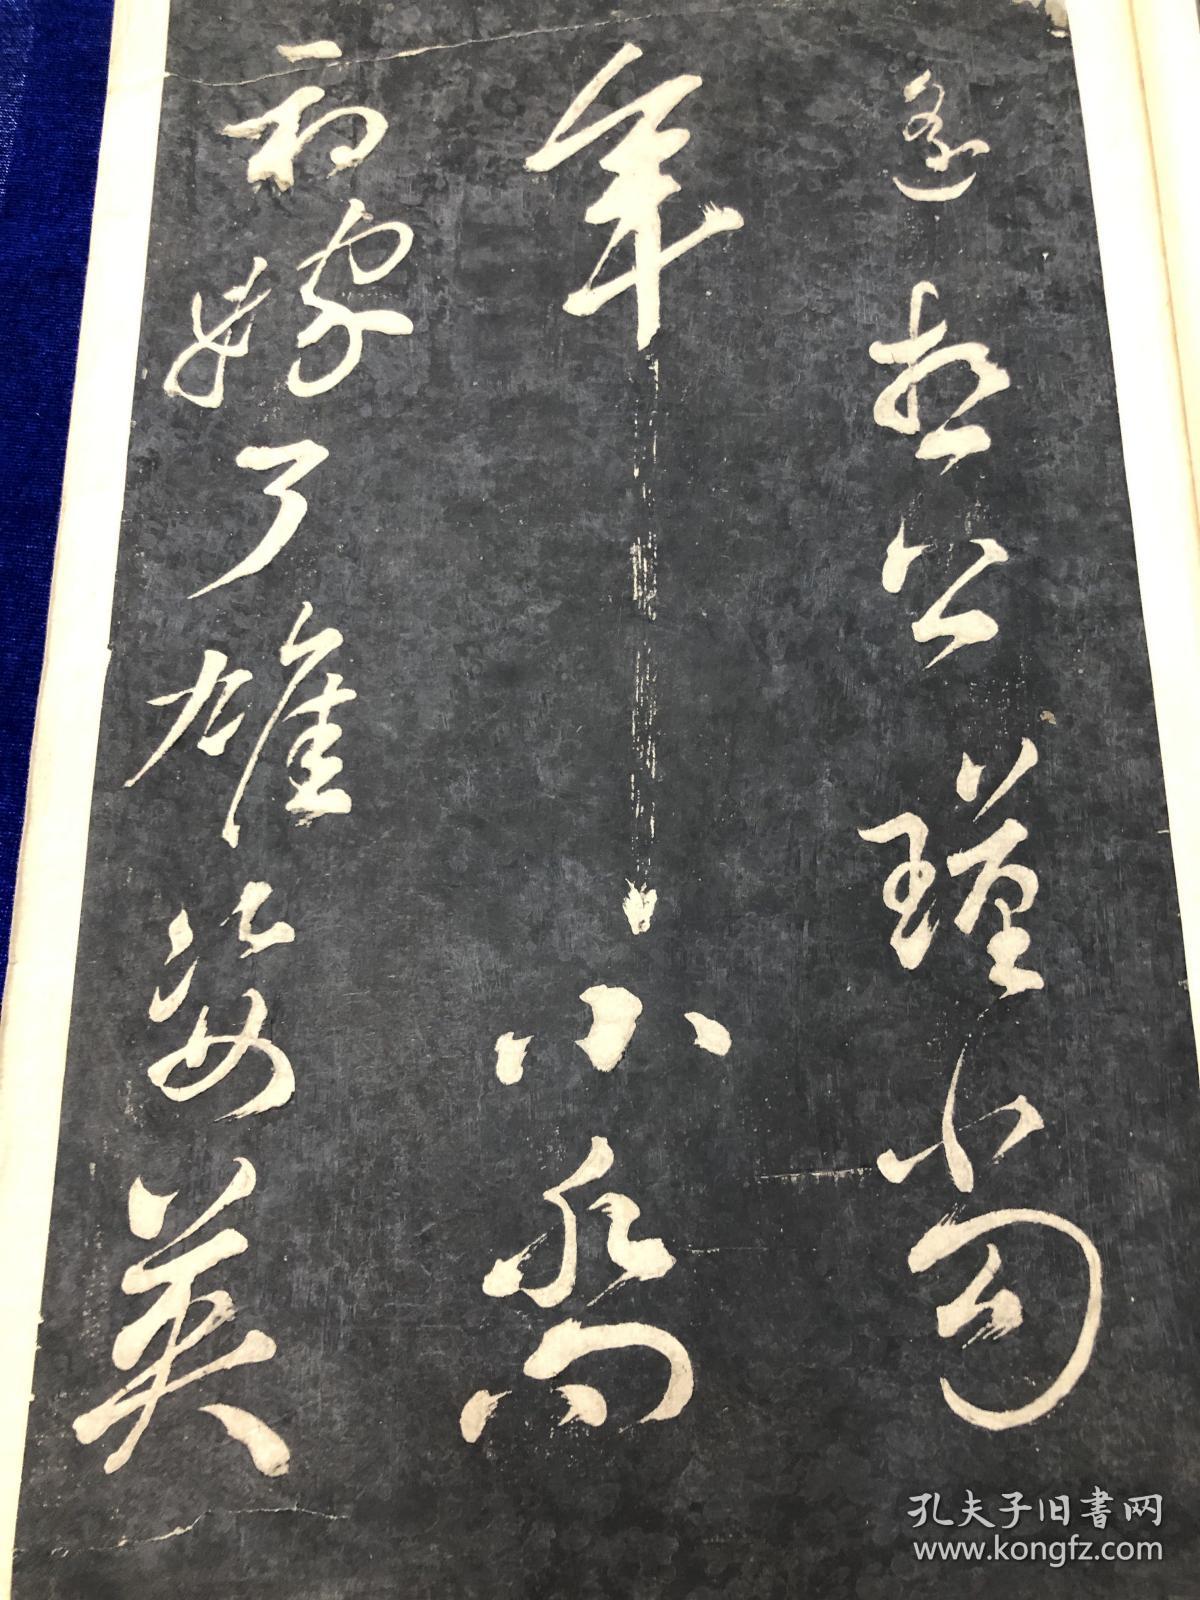 遥想公瑾當
年小喬
初嫁了雄姿英
孔夫子旧書网
www.kongfz.com